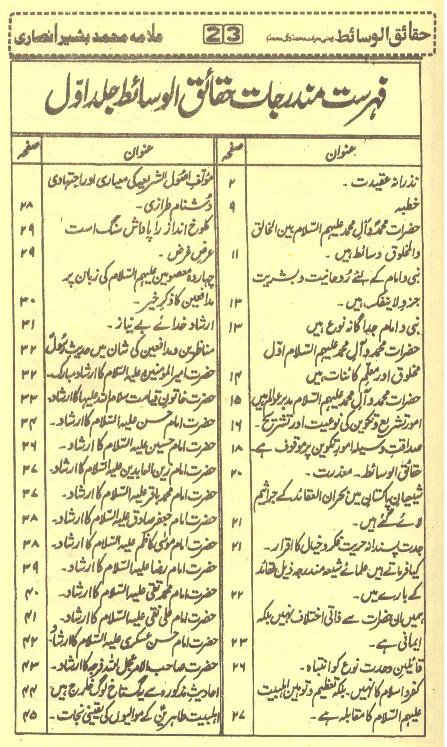 حقائق الوسائط
23
علامہ محمد بشیر انصاری
فہرست مندرجات حقائق الوسائط جلد اوّل
عنوان صفحہ
نذرانۂ عقیدت۔ ۲
خطبہ ۹
حضرات محمدؐ و آلِ محمد علیہم السّلام بین الخالق
والمخلوق وسائط ہیں۔ ۱۱
نبی و امام کے لئے روحانیت و بشریت
جزو لاینفک ہیں۔ ۱۳
نبی و امام جداگانہ نوع ہیں ۱۳
حضرات محمدؐ و آلِ محمد علیہم السّلام اوّل
مخلوق اور معلّمِ کائنات ہیں ۱۴
حضرات محمدؐ و آلِ محمد علیہم السّلام مدبرِ عوالم ہیں ۱۵
امورِ تشریع و تکوین کی نوعیت اور تشریح۔ ۱۶
صداقتِ وسیلہ امورِ تکوین پر موقوف ہے۔ ۱۸
حقائق الوسائط۔ معذرت۔ ۲۰
شیعیانِ پاکستان میں نکران العقائد کے جراثیم
لائے گئے ہیں۔ ۲۱
جدت پسند اور حریتِ فکر و خیال کا اقرار۔ ۲۱
کیا فرماتے ہیں علمائے شیعہ مندرجہ ذیل عقائد
کے بارے میں۔ ۲۲
ہمیں ان حضرات سے ذاتی اختلاف نہیں بلکہ
ایمانی ہے۔ ۲۳
قائلینِ وحدتِ نوع کو انتباہ۔ ۲۶
کفر و اسلام کا نہیں۔ بلکہ تعظیم و توہینِ اہلبیت
علیہم السّلام کا مقابلہ ہے۔ ۲۷
عنوان صفحہ
مؤلف اصول الشریعہ کی معیاری اور اجتہادی
دُشنام طرازی۔ ۲۸
کلوخ انداز را پاداش سنگ است ۲۹
عرضِ غرض۔ ۲۹
چہاردہ معصومین علیہم السّلام کی زبان پر
مدافعین کا ذکرِ خیر۔ ۳۰
ارشادِ خدائے بے نیاز۔ ۳۱
مناظرین و مدافعین کی شان میں حدیثِ رسولؐ ۳۲
حضرت امیر المومنین علیہ السّلام کا ارشاد مبارک۔ ۳۲
حضرت خاتونِ قیامت سلام اللہ علیہا کا ارشاد۔ ۳۳
حضرت امام حسن علیہ السّلام کا ارشاد۔ ۳۴
حضرت امام حسین علیہ السّلام کا ارشاد۔ ۳۶
حضرت امام زین العابدین علیہ السّلام کا ارشاد۔ ۳۷
حضرت امام محمد باقر علیہ السّلام کا ارشاد۔ ۳۷
حضرت امام جعفر صادق علیہ السّلام کا ارشاد۔ ۳۸
حضرت امام موسیٰ کاظم علیہ السّلام کا ارشاد۔ ۳۸
حضرت امام رضا علیہ السّلام کا ارشاد۔ ۳۹
حضرت امام محمد تقی علیہ السّلام کا ارشاد۔ ۴۰
حضرت امام علی نقی علیہ السّلام کا ارشاد۔ ۴۱
حضرت امام حسن عسکری علیہ السّلام کا ارشاد ۴۲
حضرت صاحب الامر عجل اللہ فرجہ کا ارشاد۔ ۴۳
احادیثِ مذکورہ سے گستاخ لوگ خارج ہیں ۴۴
اہلبیت طاہرین کے موالیوں کی یقینی نجات۔ ۴۵